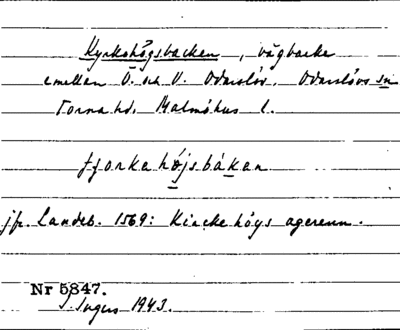 Kyrkohögsbacken, vägbacke
emellan Ö. och V. Odarslöv. Odarslövs sn
Torna hd. Malmöhus l.
jfr. Landeb. 1569: Kircke höys agerenn.
Nr 5847.
I. Ingers 1943.